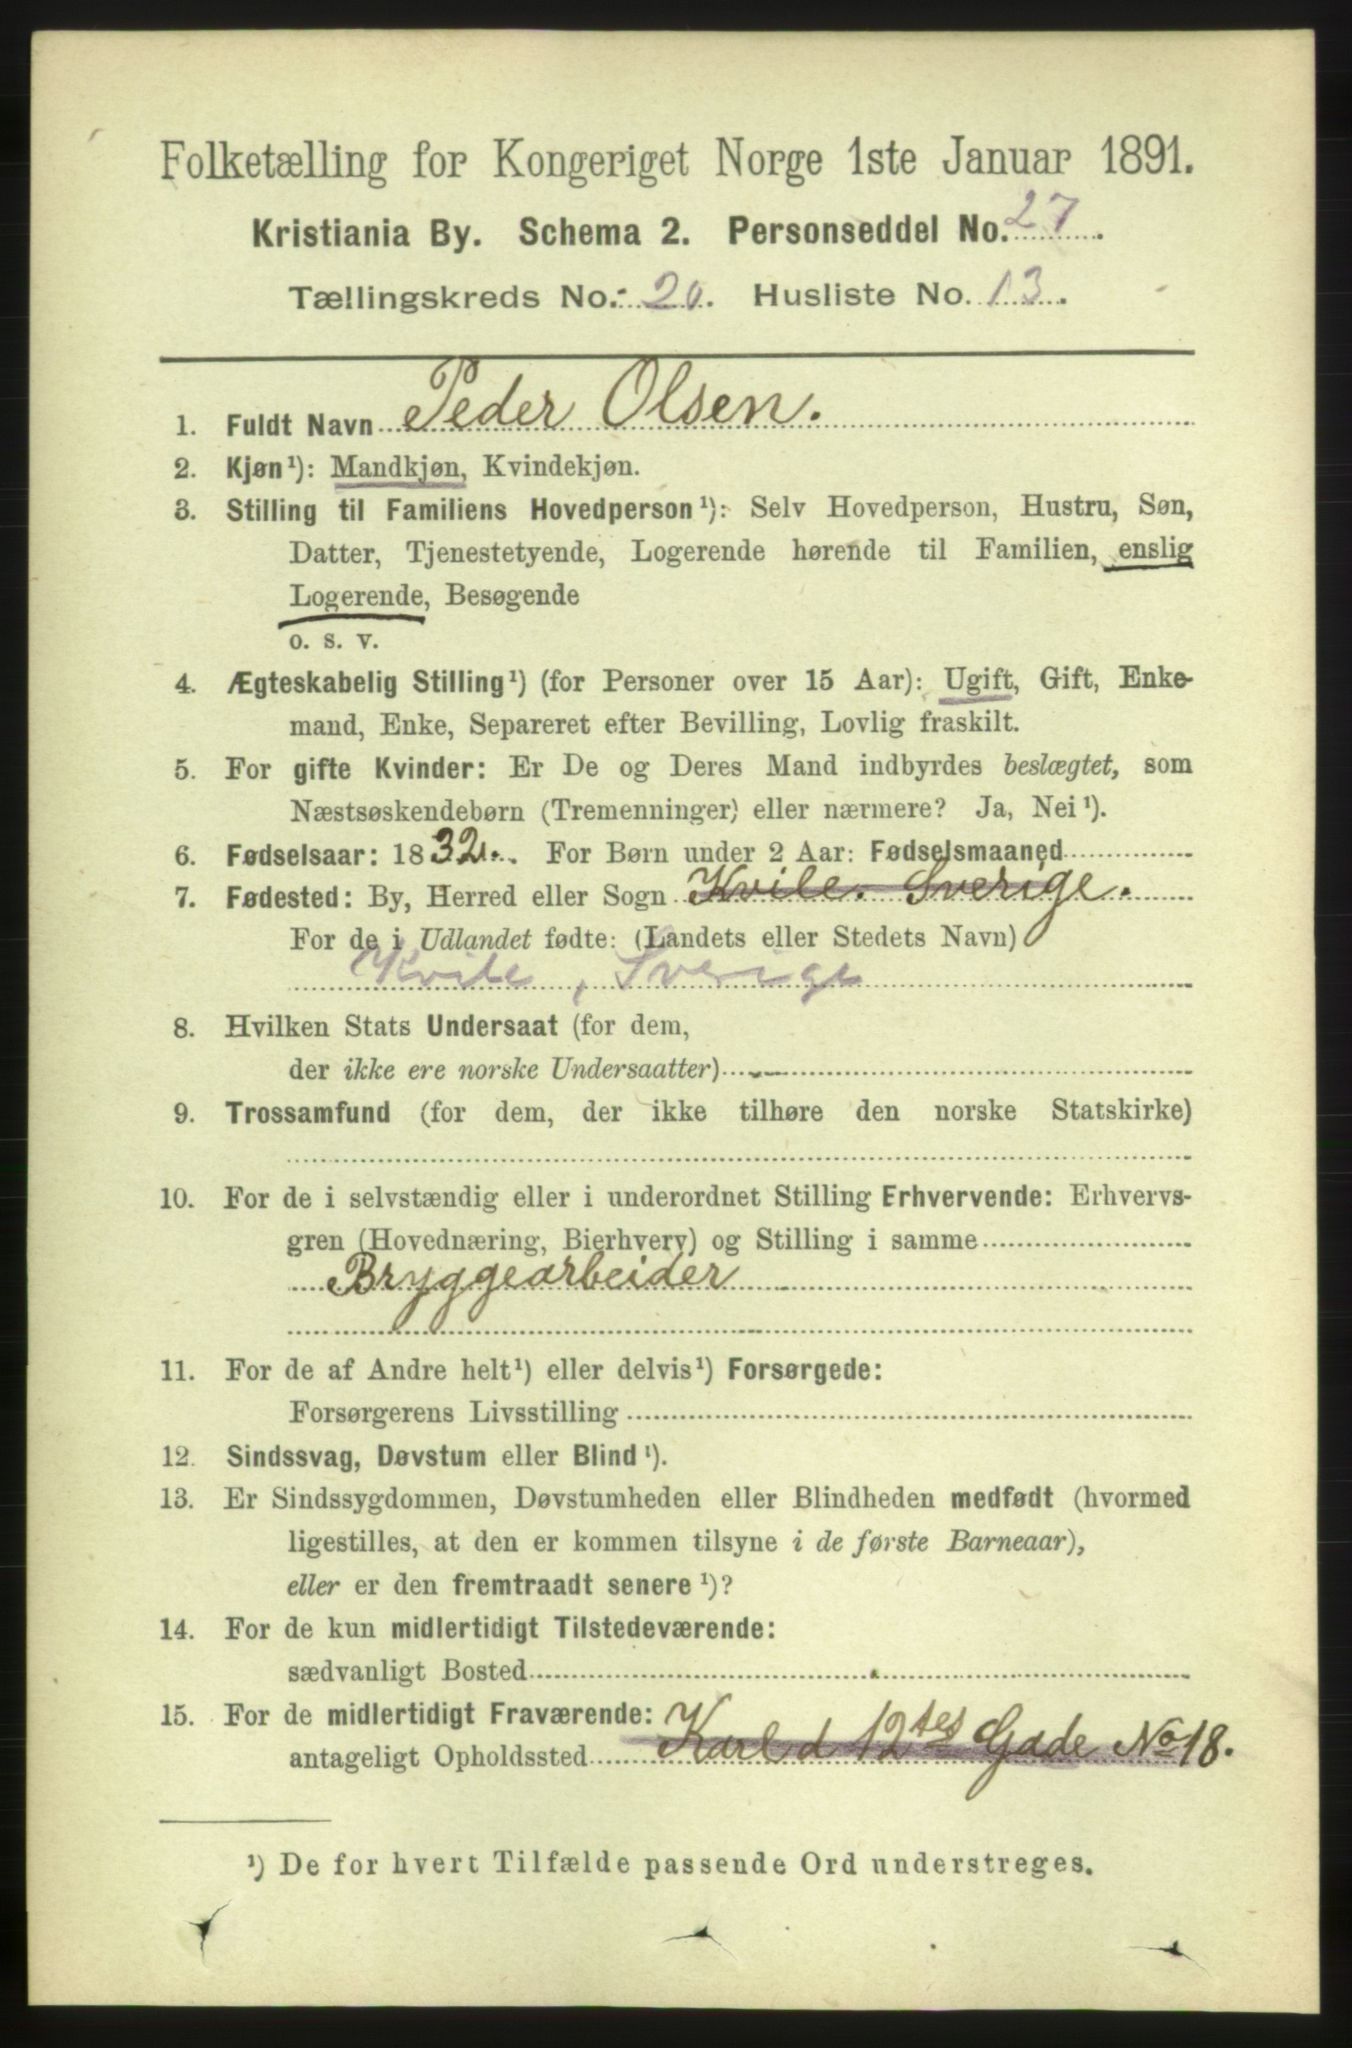 Folketælling for Kongeriget Norge 1ste Januar 1891.
Kristiania By. Schema 2. Personseddel No. 27.
Tællingskreds No. 20. Husliste No. 13.
1. Fuldt Navn Peder Olsen.
2. Kjøn¹): Mandkjøn, Kvindekjøn.
3. Stilling til Familiens Hovedperson¹): Selv Hovedperson, Hustru, Søn,
Datter, Tjenestetyende, Logerende hørende til Familien, enslig
Logerende, Besøgende
o. s. v.
4. Ægteskabelig Stilling¹) (for Personer over 15 Aar): Ugift, Gift, Enke-
mand, Enke, Separeret efter Bevilling, Lovlig fraskilt.
5. For gifte Kvinder: Er De og Deres Mand indbyrdes beslægtet, som
Næstsøskendebørn (Tremenninger) eller nærmere? Ja, Nei¹).
6. Fødselsaar: 1832. For Børn under 2 Aar: Fødselsmaaned
7. Fødested: By, Herred eller Sogn Kvile. Sverige.
For de i Udlandet fødte: (Landets eller Stedets Navn)
Kvile, Sverige
8. Hvilken Stats Undersaat (for dem,
der ikke ere norske Undersaatter)
9. Trossamfund (for dem, der ikke tilhøre den norske Statskirke)
10. For de i selvstændig eller i underordnet Stilling Erhvervende: Erhvervs-
gren (Hovednæring, Bierhverv) og Stilling i samme
Bryggearbeider
11. For de af Andre helt¹) eller delvis¹) Forsørgede:
Forsørgerens Livsstilling
12. Sindssvag, Døvstum eller Blind¹).
13. Er Sindssygdommen, Døvstumheden eller Blindheden medfødt (hvormed
ligestilles, at den er kommen tilsyne i de første Barneaar),
eller er den fremtraadt senere¹)?
14. For de kun midlertidigt Tilstedeværende:
sædvanligt Bosted
15. For de midlertidigt Fraværende:
antageligt Opholdssted Karl d 12tes Gade No 18.
¹) De for hvert Tilfælde passende Ord understreges.